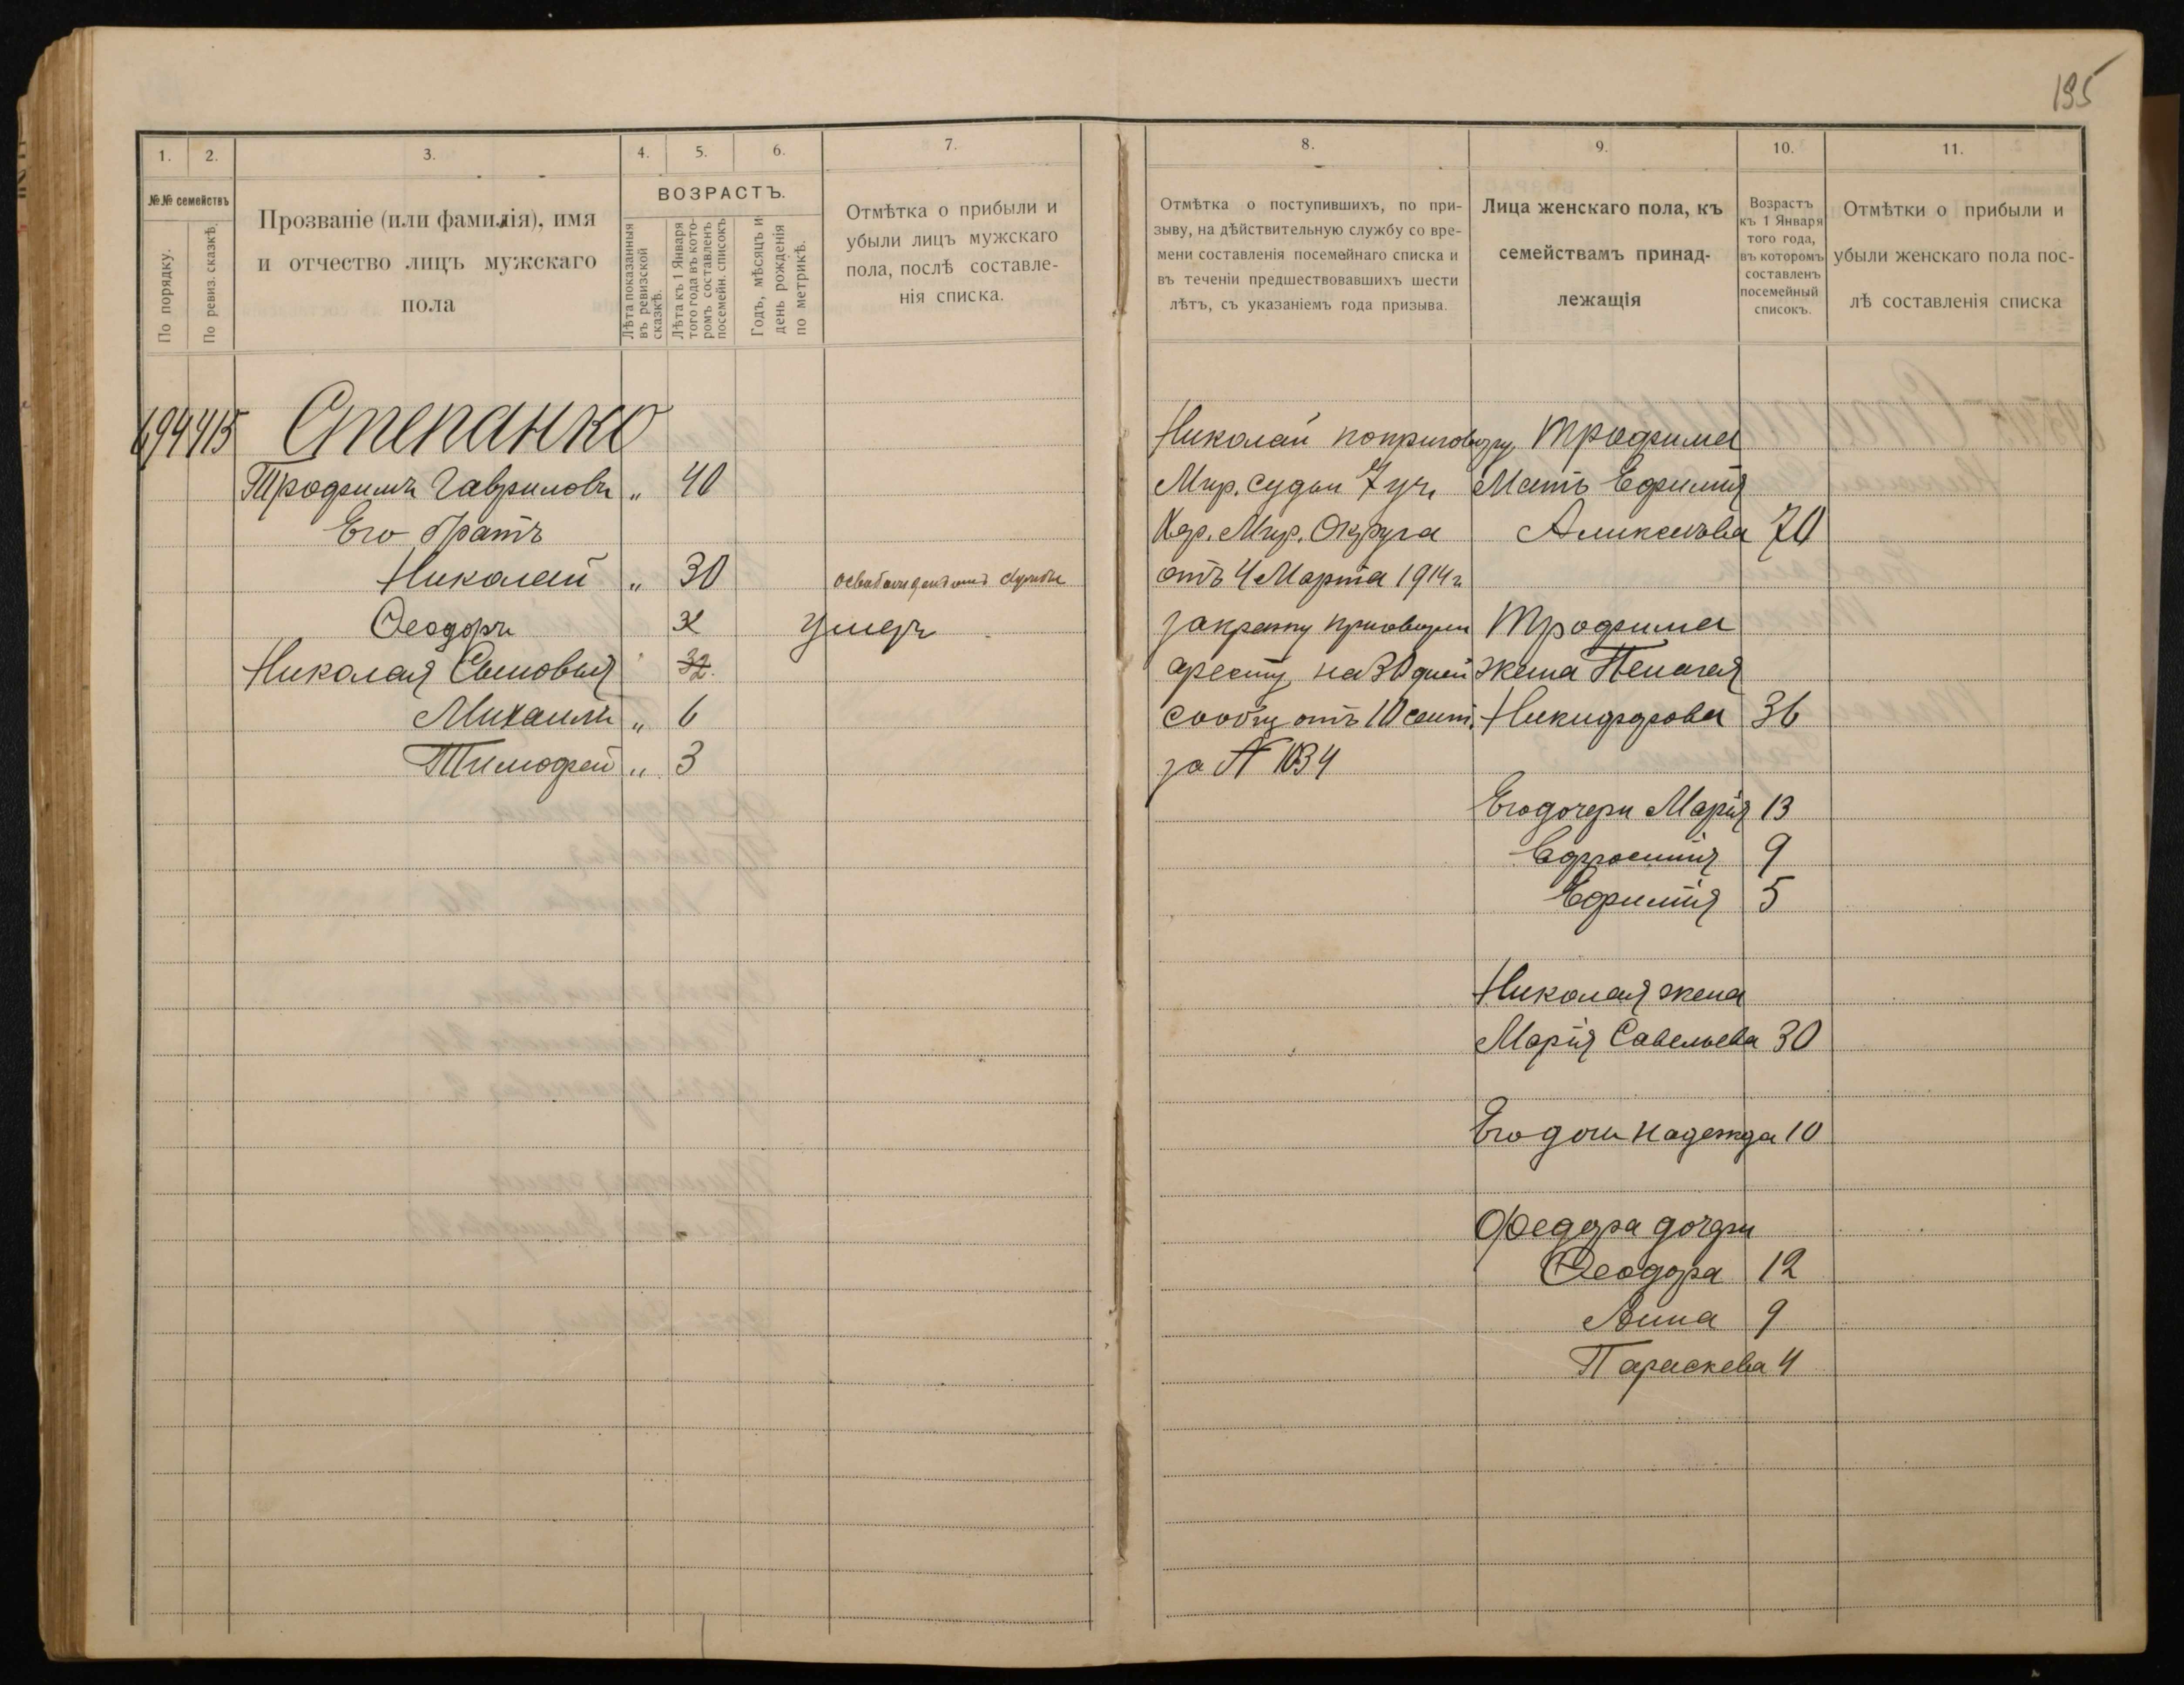 195
1.
2.
3.
4.
5.
6.
7.
№№ семействъ
По порядку.
По ревиз. сказкѣ.
Прозваніе (или фамилія), имя
и отчество лицъ мужскаго
пола
ВОЗРАСТЪ.
Лѣта показанныя
въ ревизской
сказкѣ.
Лѣта къ 1 Января
того года въ кото-
ромъ составленъ
посемейн. списокъ
Годъ, мѣсяцъ и
день рожденія
по метрикѣ.
Отмѣтка о прибыли и
убыли лицъ мужскаго
пола, послѣ составле-
нія списка.
694 415 Степанко
Трофимъ Гавриловъ „ 40
Его братъ
Николай „ 30
Ѳеодоръ умеръ
Николая Сыновья 32
Михаилъ „ 6
Тимофей „ 3
8.
9.
10.
11.
Отмѣтка о поступившихъ, по при-
зыву, на дѣйствительную службу со вре-
мени составленія посемейнаго списка и
въ теченіи предшествовавшихъ шести
лѣтъ, съ указаніемъ года призыва.
Лица женскаго пола, къ
семействамъ принад-
лежащія
Возрастъ
къ 1 Января
того года,
въ которомъ
составленъ
посемейный
списокъ.
Отмѣтки о прибыли и
убыли женскаго пола пос-
лѣ составленія списка
Николай поприговору
Мир. Судьи 7 уч.
Мир. Округа
отъ 4 Марта 1914 г.
закражу
аресту на 30 дней
сообщ отъ 10 сент.
за № 1034
Трофима
Мать Ефимія
Алексѣева 70
Трофима
жена Пелагея
Никифорова 36
Его дочери Марія 13
Ефросинія 9
Ефимія 5
Николая жена
Марія Савельева 30
Его дочь Надежда 10
Федора дочери
Ѳеодора 12
Анна 9
Параскева 4